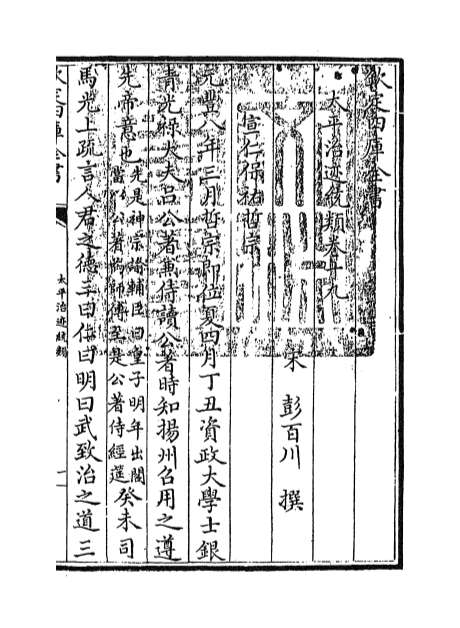 欽定四庫全書
太平治迹統類卷十九
宋 彭百川 撰
宣仁保祐哲宗
元豐八年三月哲宗即位夏四月丁丑資政大學士銀
青光祿大夫呂公著兼侍讀公著時知揚州召用之遵
先帝意也先是神宗諭輔臣曰皇子明年出閣
當以公著為師傅至是公著侍經筵癸未司
馬光上疏言人君之德三曰仁曰明曰武致治之道三
欽定四庫全書
太平治迹統類
一